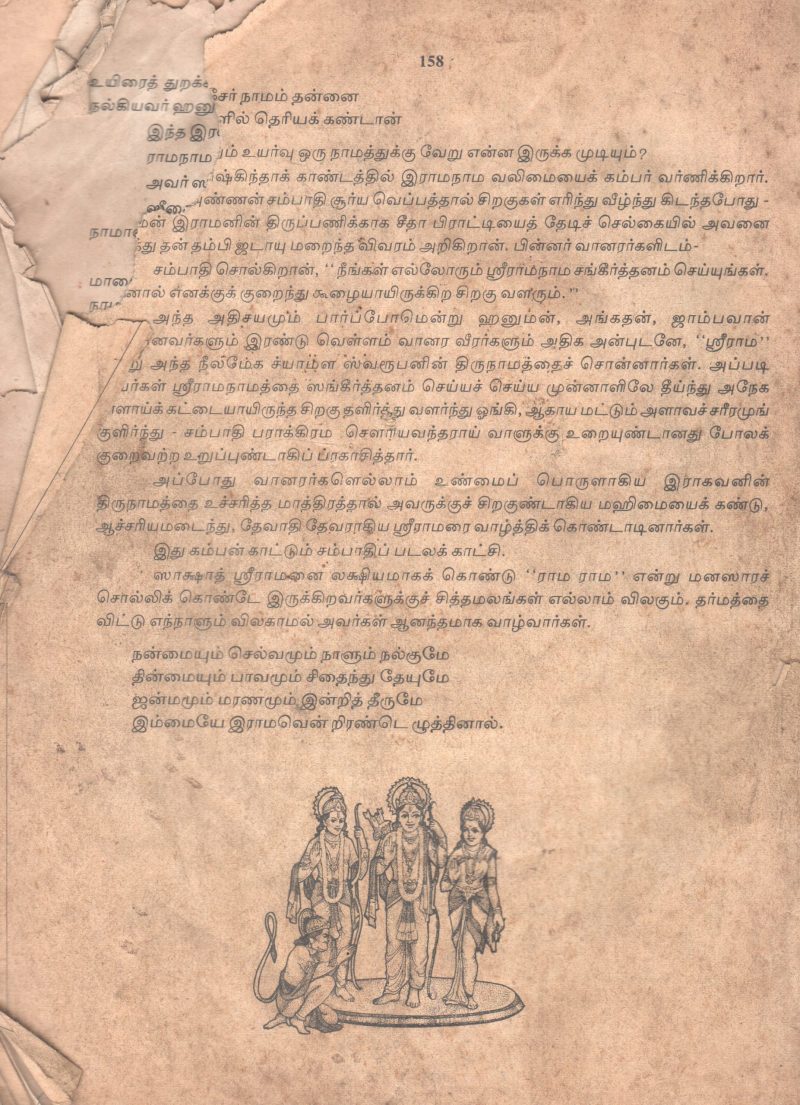 158
உயிரைத் துறக்
சேர் நாமம் தன்னை
நல்கியவர் ஹனு
ளில் தெரியக் கண்டான்
இந்த இர
ராமநாம
ம் உயர்வு ஒரு நாமத்துக்கு வேறு என்ன இருக்க முடியும்?
ஷ்கிந்தாக் காண்டத்தில் இராமநாம வலிமையைக் கம்பர் வர்ணிக்கிறார்.
அவர் ஸ
ண்ணன் சம்பாதி சூர்ய வெப்பத்தால் சிறகுகள் எரிந்து வீழ்ந்து கிடந்தபோது -
நாமா
மன் இராமனின் திருப்பணிக்காக சீதா பிராட்டியைத் தேடிச் செல்கையில் அவனை
து தன் தம்பி ஜடாயு மறைந்த விவரம் அறிகிறான். பின்னர் வானரர்களிடம்-
சம்பாதி சொல்கிறான், "நீங்கள் எல்லோரும் ஸ்ரீராமநாம சங்கீர்த்தனம் செய்யுங்கள்.
னால் எனக்குக் குறைந்து கூழையாயிருக்கிற சிறகு வளரும்."
அந்த அதிசயமும் பார்ப்போமென்று ஹனுமன், அங்கதன், ஜாம்பவான்
னவர்களும் இரண்டு வெள்ளம் வானர வீரர்களும் அதிக அன்புடனே, "ஸ்ரீராம"
று அந்த நீலமேக ச்யாமள ஸ்வரூபனின் திருநாமத்தைச் சொன்னார்கள். அப்படி
வர்கள் ஸ்ரீராமநாமத்தை ஸங்கீர்த்தனம் செய்யச் செய்ய முன்னாளிலே தீய்ந்து அநேக
ளாய்க் கட்டையாயிருந்த சிறகு தளிர்த்து வளர்ந்து ஓங்கி, ஆகாய மட்டும் அளாவச் சரீரமுங்
குளிர்ந்து - சம்பாதி பராக்கிரம சௌரியவந்தராய் வாளுக்கு உறையுண்டானது போலக்
குறைவற்ற உறுப்புண்டாகிப் ப்ரகாசித்தார்.
அப்போது வானரர்களெல்லாம் உண்மைப் பொருளாகிய இராகவனின்
திருநாமத்தை உச்சரித்த மாத்திரத்தால் அவருக்குச் சிறகுண்டாகிய மஹிமையைக் கண்டு,
ஆச்சரியமடைந்து, தேவாதி தேவராகிய ஸ்ரீராமரை வாழ்த்திக் கொண்டாடினார்கள்.
இது கம்பன் காட்டும் சம்பாதிப் படலக் காட்சி.
ஸாக்ஷாத் ஸ்ரீராமனை லக்ஷியமாகக் கொண்டு "ராம ராம" என்று மனஸாரச்
சொல்லிக் கொண்டே இருக்கிறவர்களுக்குச் சித்தமலங்கள் எல்லாம் விலகும். தர்மத்தை
விட்டு எந்நாளும் விலகாமல் அவர்கள் ஆனந்தமாக வாழ்வார்கள்.
நன்மையும் செல்வமும் நாளும் நல்குமே
தின்மையும் பாவமும் சிதைந்து தேயுமே
ஜன்மமும் மரணமும் இன்றித் தீருமே
இம்மையே இராமவென் றிரண்டெ ழுத்தினால்.